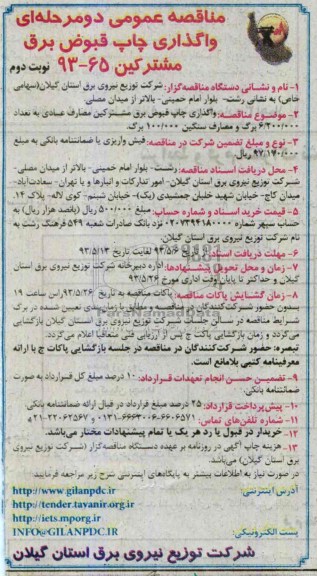 مناقصه عمومی دومرحله‌ای
واگذاری چاپ قبوض برق
مشترکین ۶۵-۹۳ نوبت دوم
۱- نام و نشانی دستگاه مناقصه‌گزار: شرکت توزیع نیروی برق استان گیلان(سهامی
خاص) به نشانی رشت- بلوار امام خمینی- بالاتر از میدان مصلی
۲- موضوع مناقصه: واگذاری چاپ قبوض برق مشترکین مصارف عادی به تعداد
۶/۲۰۰/۰۰۰ برگ و مصارف سنگین ۱۰۰/۰۰۰ برگ.
۳- نوع و مبلغ تضمین شرکت در مناقصه: فیش واریزی یا ضمانتنامه بانکی به مبلغ
۹۷/۱۹۰/۰۰۰ ریال
۴- محل دریافت اسناد مناقصه: رشت- بلوار امام خمینی- بالاتر از میدان مصلی-
شرکت توزیع نیروی برق استان گیلان- امور تدارکات و انبارها و یا تهران- سعادت‌آباد-
میدان کاج- خیابان شهید خلیان جمشیدی (یک)- خیابان نسیم- کوی لاله- پلاک ۱۴.
۵- قیمت خرید اسناد و شماره حساب: مبلغ ۵۰۰/۰۰۰ ریال (پانصد هزار ریال) به
حساب سپهر شماره نزد بانک صادرات شعبه ۵۴۹ فرهنگ رشت به
نام شرکت توزیع نیروی برق استان گیلان.
۶- مهلت دریافت اسناد: از تاریخ ۹۳/۵/۶ لغایت تاریخ ۹۳/۵/۱۳
۷- زمان و محل تحویل پیشنهادها: اداره دبیرخانه شرکت توزیع نیروی برق استان
گیلان و حداکثر تا پایان وقت اداری مورخ ۹۳/۵/۲۶
۸- زمان گشایش پاکات مناقصه: پاکات مناقصه به تاریخ ۹۳/۵/۲۶ راس ساعت ۱۹
بدون حضور شرکت‌کنندگان در مناقصه و مطابق با زمانبندی تعیین شده در برگ
شرایط مناقصه در سالن جلسات شرکت توزیع نیروی برق استان گیلان بازگشایی
می‌گردد و زمان بازگشایی پاکت ج پس از ارزیابی فنی متعاقبا اعلام می‌گردد.
تبصره: حضور شرکت‌کنندگان در مناقصه در جلسه بازگشایی پاکات ج با ارائه
معرفینامه کتبی بلامانع است.
۹- تضمین حسن انجام تعهدات قرارداد: ۱۰ درصد مبلغ کل قرارداد به صورت
ضمانتنامه بانکی.
۱۰- پیش‌پرداخت قرارداد: ۲۵ درصد مبلغ قرارداد در قبال ارائه ضمانتنامه بانکی
۱۱- شماره تلفن‌های تماس: ۶۶۰۶۵۷۱-۶۶۶۴۰۰۶-۰۱۳۱ و ۲۲۰۶۲۵۶۷-۰۲۱
۱۲- خریدار در قبول یا رد هر یک یا تمام پیشنهادات مختار می‌باشد.
۱۳- هزینه چاپ آگهی در روزنامه بر عهده دستگاه مناقصه‌گزار (شرکت توزیع نیروی
برق استان گیلان) می‌باشد.
در صورت نیاز به اطلاعات بیشتر به پایگاه‌های اینترنتی شرح زیر مراجعه فرمایید
آدرس اینترنتی: http://www.gilanpdc.ir
http://tender.tavanir.org.ir
http://iets.mporg.ir
پست الکترونیکی: INFO@GILANPDC.IR
شرکت توزیع نیروی برق استان گیلان